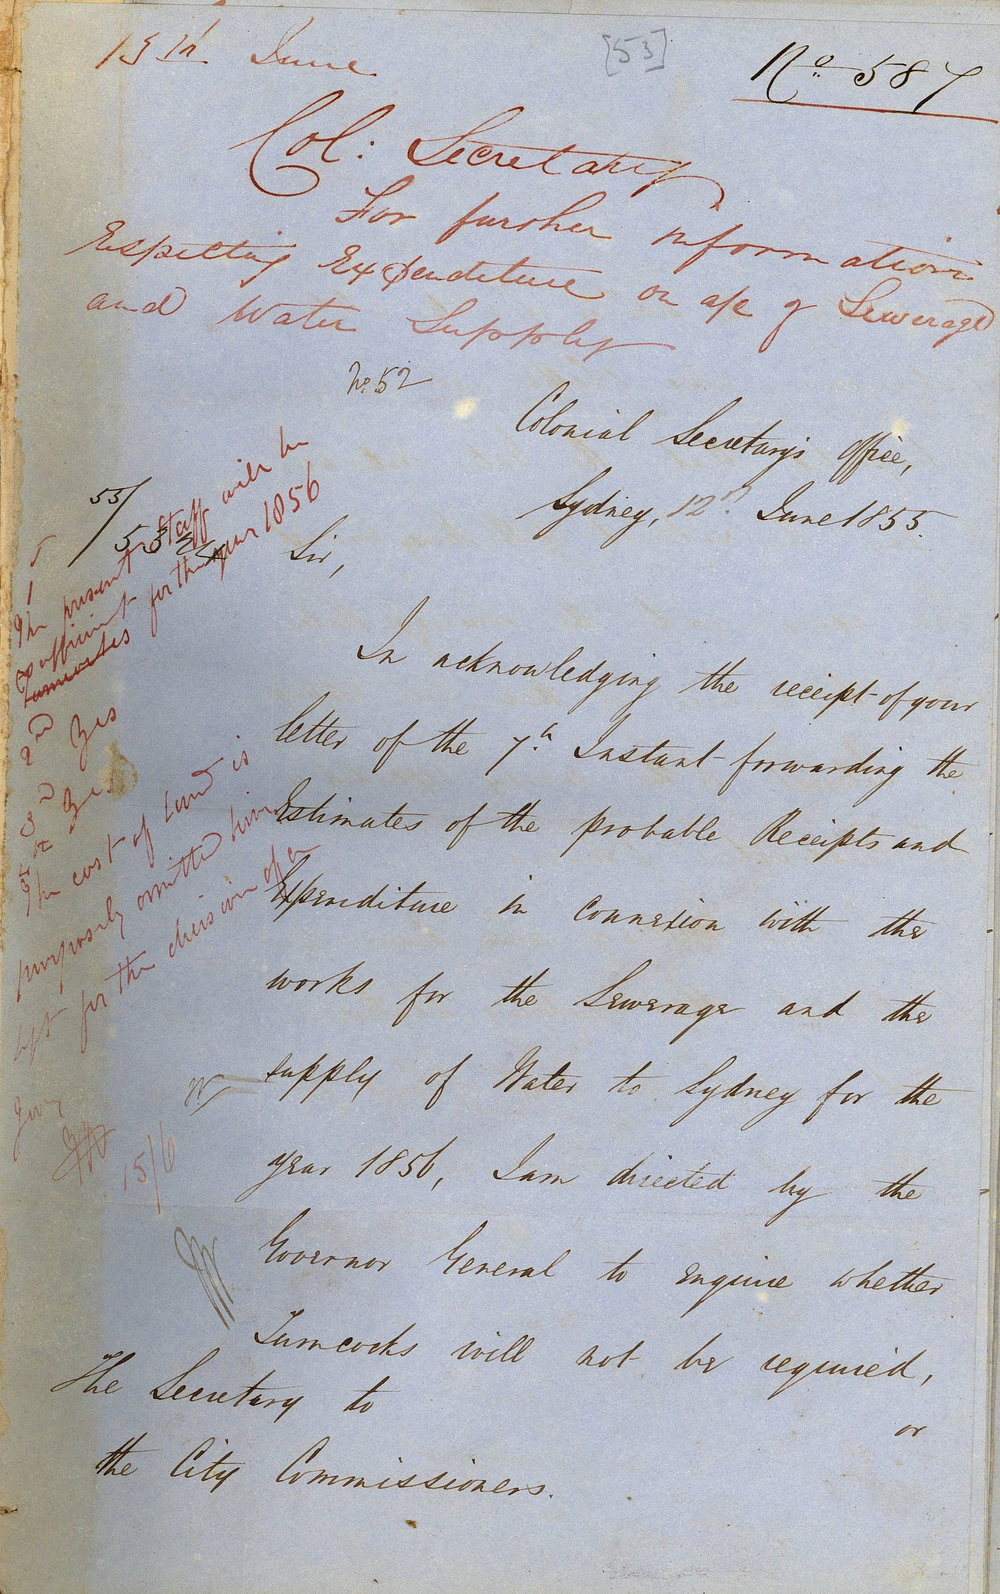 15th June
[53]
No. 587
Col: Secretary
For further information
respecting Expenditure on a/c of Sewerage
and Water Supply
No. 52
Colonial Secretary's Office,
Sydney, 12th June 1855.
55/
Sir,
1st
The present Staff will be
sufficient for the year 1856
2nd Yes
3rd Yes
4th
The cost of land is
purposely omitted being
left for the decision of a
15/6
In acknowledging the receipt of your
letter of the 7th Instant forwarding the
Estimates of the probable Receipts and
Expenditure in connexion with the
works for the Sewerage and the
supply of Water to Sydney for the
year 1856, I am directed by the
Governor General to enquire whether
Turncocks will not be required,
or
The Secretary to
the City Commissioners.